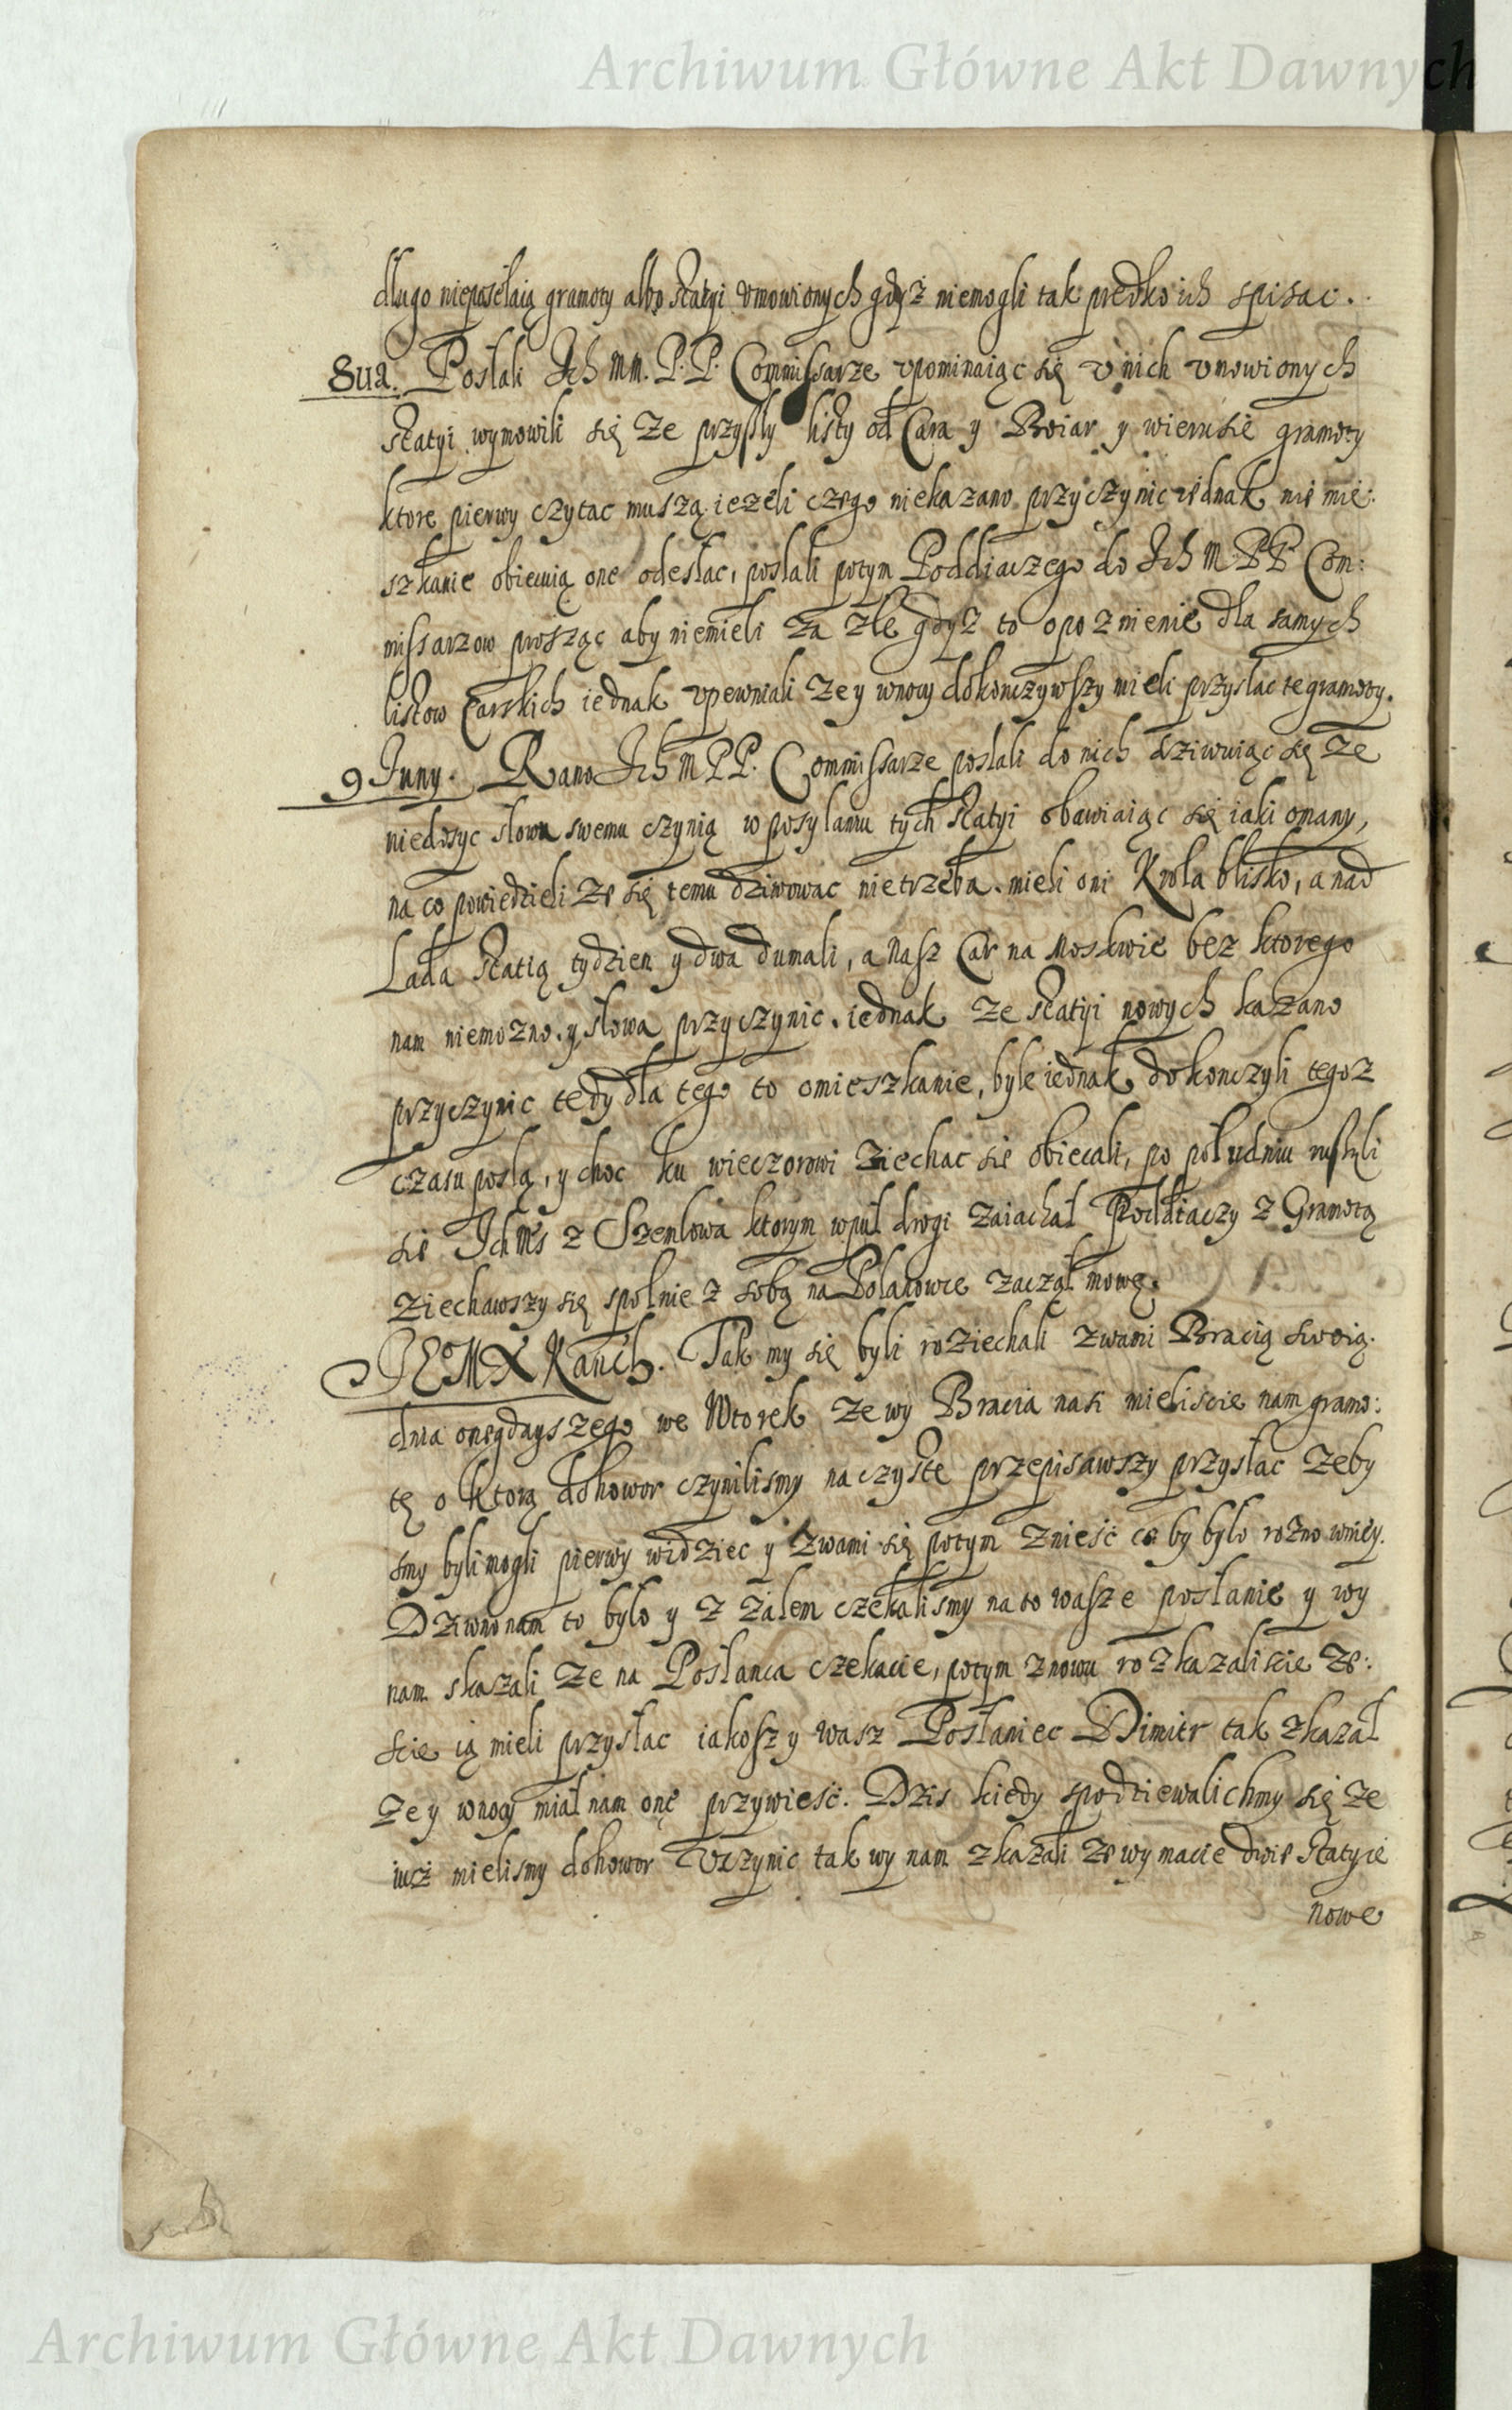 Archiwum Główne Akt Dawnych
długo nieposełaią gramoty albo statyi vmowionych gdyż niemogli tak prędko ich spisac.
8ua. Posłali Ich MM. P.P. Commissarze vpominaiąc się v nich vmowionych
statyi wymowili się że przyszły listy od Cara y Boiar y wierusie gramoty
ktore pierwy czytac muszą ieżeli czego niekazano przyczynic iednak nie mie:
szkanie obiecuią one odesłac, posłali potym Poddiaczego do Ich M PP Com:
missarzow prosząc aby niemieli za złe gdyż to opoznienie dla samych
listow Carskich iednak vpewniali że y wnocy dokonczywszy mieli przysłac te gramoty.
9 Iuny. Rano Ich M PP. Commissarze posłali do nich dziwuiąc się że
niedosyc słowu swemu czynią w posyłaniu tych statyi obawiaiąc się iaki omany,
na co powiedzieli że się temu dziwowac nietrzeba. mieli oni Krola blisko, a nad
Lada statią tydzien y dwa dumali, a nasz Car na Moskwie bez ktorego
nam niemozno y słowa przyczynic. iednak że statyi nowych kazano
przyczynic tedy dla tego to omieszkanie, byle iednak dokonczyli tegoz
czasu poslą, y choc ku wieczorowi ziechac sie obiecali, po południu ruszyli
sie Ich Ms z Szemlowa ktorym wpuł drogi zaiachał Poddiaczy z Gramotą
ziechawszy się spolnie z sobą na Polanowce zaczął mowę.
IEMX Kancl. Tak my się byli roziechali zwami Bracią swoią.
dnia onegdayszego we Wtorek że wy Bracia nasi mieliscie nam gramo:
tę o ktorą dohowor czynilismy na czyste przepisawszy przysłac żeby
smy byli mogli pierwy widziec y zwami się potym znieść co by było rożno wniey.
Dziwno nam to było y z żalem czekalismy na to wasze posłanie y wy
nam skazali że na Posłanca czekacie, potym znowu rozkazaliscie że:
scie ią mieli przysłac iakosz y wasz Posłaniec Dimitr tak zkazał
że y wnocy miał nam onę przywieść. Dzis kiedy spodziewalichmy się że
iuż mielismy dohowor vczynic tak wy nam zkazali że wy macie dwie statyie
nowe
Archiwum Główne Akt Dawnych